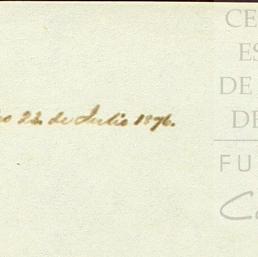 o 22. de Julio 1876.
CE
ES
DE
DE
FU
C